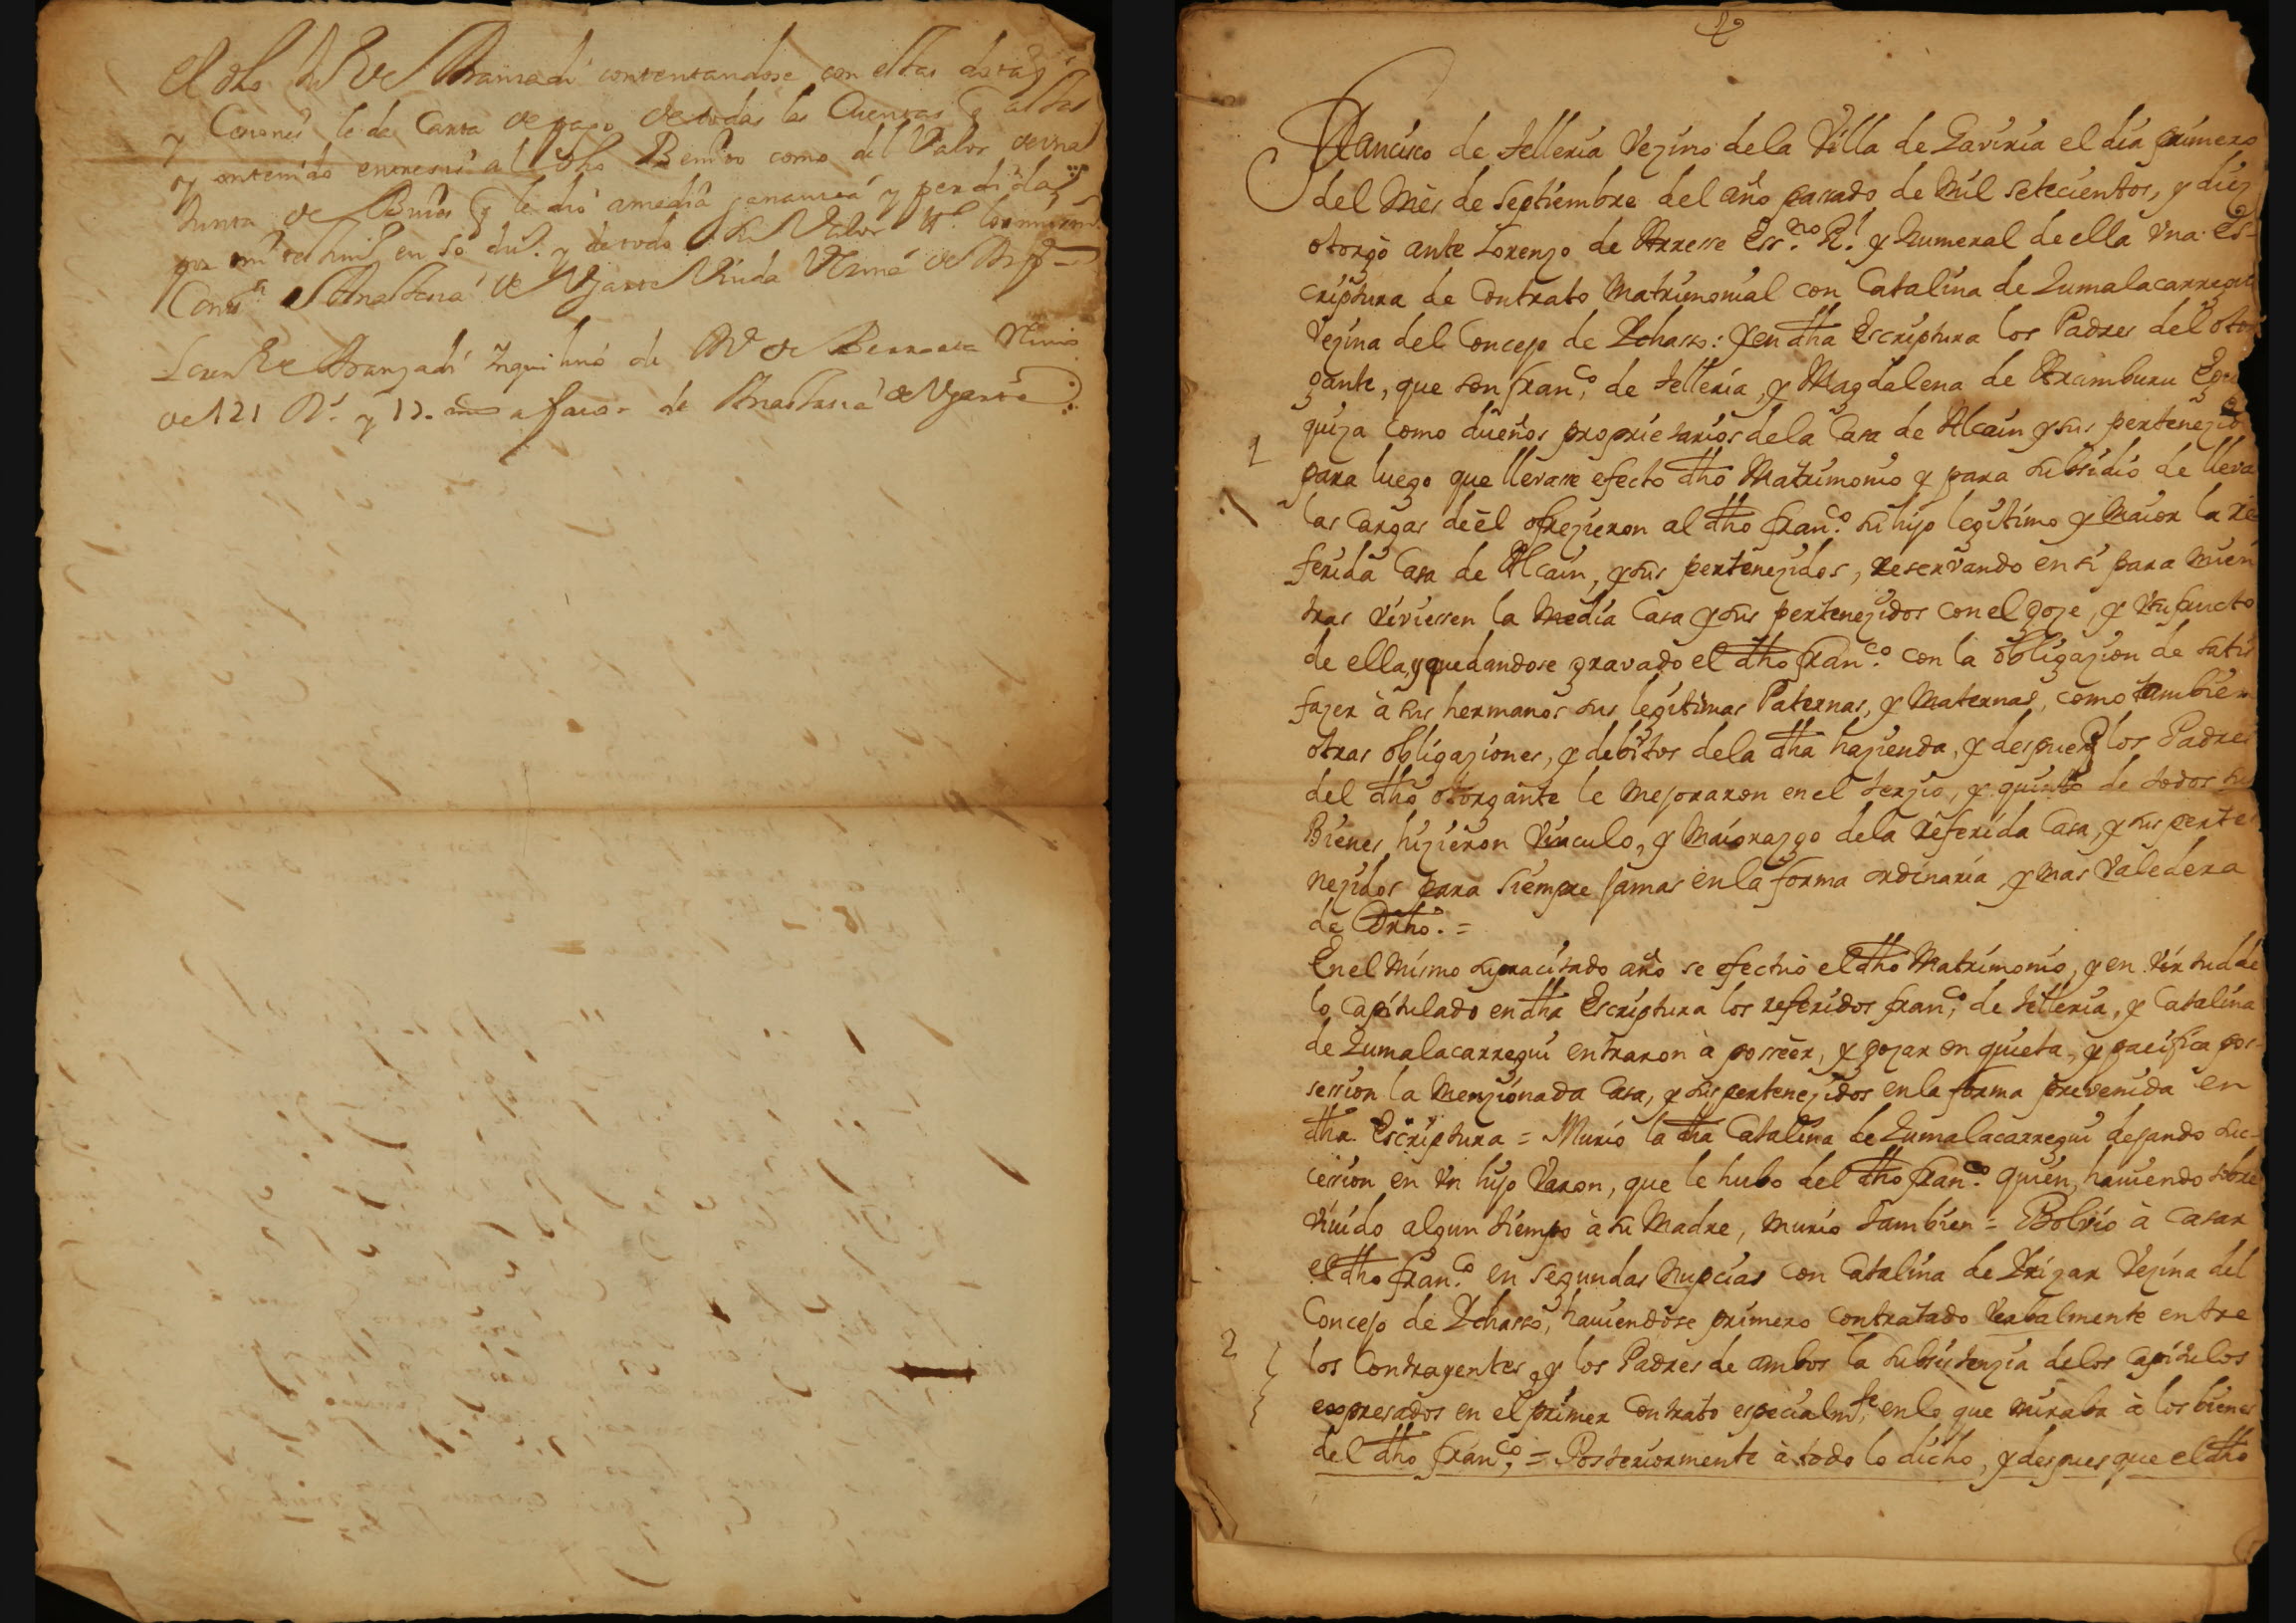 el dho contentandose con estas
y le da Carta de pago de todas las Cuentas
y contenido entre si al dho Benito como del Valor de una
Junta de Bueies q le dio a media ganancia y perdida
en 50 du.s y de todo
Viuda
Aranzadi Inquilino de
de 121 R.s y 12 a favor de Anastasia de Ugarte
Francisco de Telleria Vezino de la Villa de Gaviria el dia primero
del Mes de Septiembre del año passado de Mil setecientos, y diez
otorgò ante Lorenzo de Arresse Ess.no R.l y Numeral de ella Vna Es-
criptura de Contrato Matrimonial con Catalina de Zumalacarregui
Vezina del Concejo de Ychasso: y en dha Escriptura los Padres del otor
gante, que son fran.co de Telleria, y Magdalena de Aramburu
quiza como dueños proprietarios de la Casa de Alcain y sus pertenezidos
1
para luego que llevasse efecto dho Matrimonio y para subsidio de lleva
las Cargas de èl ofrezieron al dho fran.co su hijo legitimo y Maior la re
ferida Casa de Alcain, y sus pertenezidos, reservando en si para mien
tras viviessen la Media Casa y sus pertenezidos con el goze, y Vsufructo
de ella, y quedandose gravado el dho fran.co con la obligazion de satis
fazer à sus hermanos sus legitimas Paternas, y Maternas, como tambien
otras obligaziones, y debitos de la dha hazienda, y despues los Padres
del dho otorgante le Mejoraron en el terzio, y quinto de todos sus
Bienes, hizieron Vinculo, y Maiorazgo de la referida Casa, y sus perte
nezidos para siempre jamas en la forma ordinaria, y mas Valedera
de Drho. =
En el Mismo supracitado año se efectuò el dho Matrimonio, y en Virtud de
lo Capitulado en dha Escriptura los referidos fran.co de Telleria, y Catalina
de Zumalacarregui entraron à posseer, y gozar en quieta, y pacifica pos-
session la Menzionada Casa, y sus pertenezidos en la forma prevenida en
dha Escriptura = Murio la dha Catalina de Zumalacarregui dejando suc-
cession en Vn hijo Varon, que le hubo del dho fran.co quien, haviendo sobre
vivido algun tiempo à su Madre, murio tambien = Bolvio à Casar
el dho fran.co en segundas Nupcias con Catalina de Yrizar Vezina del
Concejo de Ychasso, haviendose primero Contratado Verbalmente entre
2
los Contrayentes, y los Padres de ambos la subsistenzia de los Capitulos
expresados en el primer Contrato especialm.te en lo que miraba à los bienes
del dho fran.co = Posteriormente à todo lo dicho, y despues que el dho